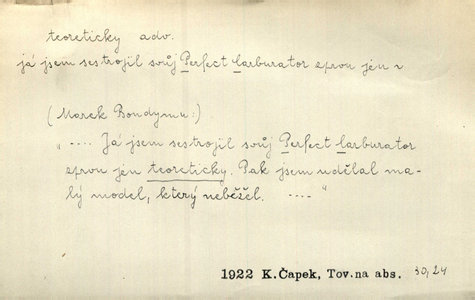 teoreticky adv.
já jsem sestrojil svůj Perfect Carburator zprvu jen t
(Marek Bondymu:)
„ .... Já jsem sestrojil svůj Perfect Carburator
zprvu jen teoreticky. Pak jsem udělal ma-
lý model, který neběžel. .... "
1922 K.Čapek, Tov.na abs. 30,24